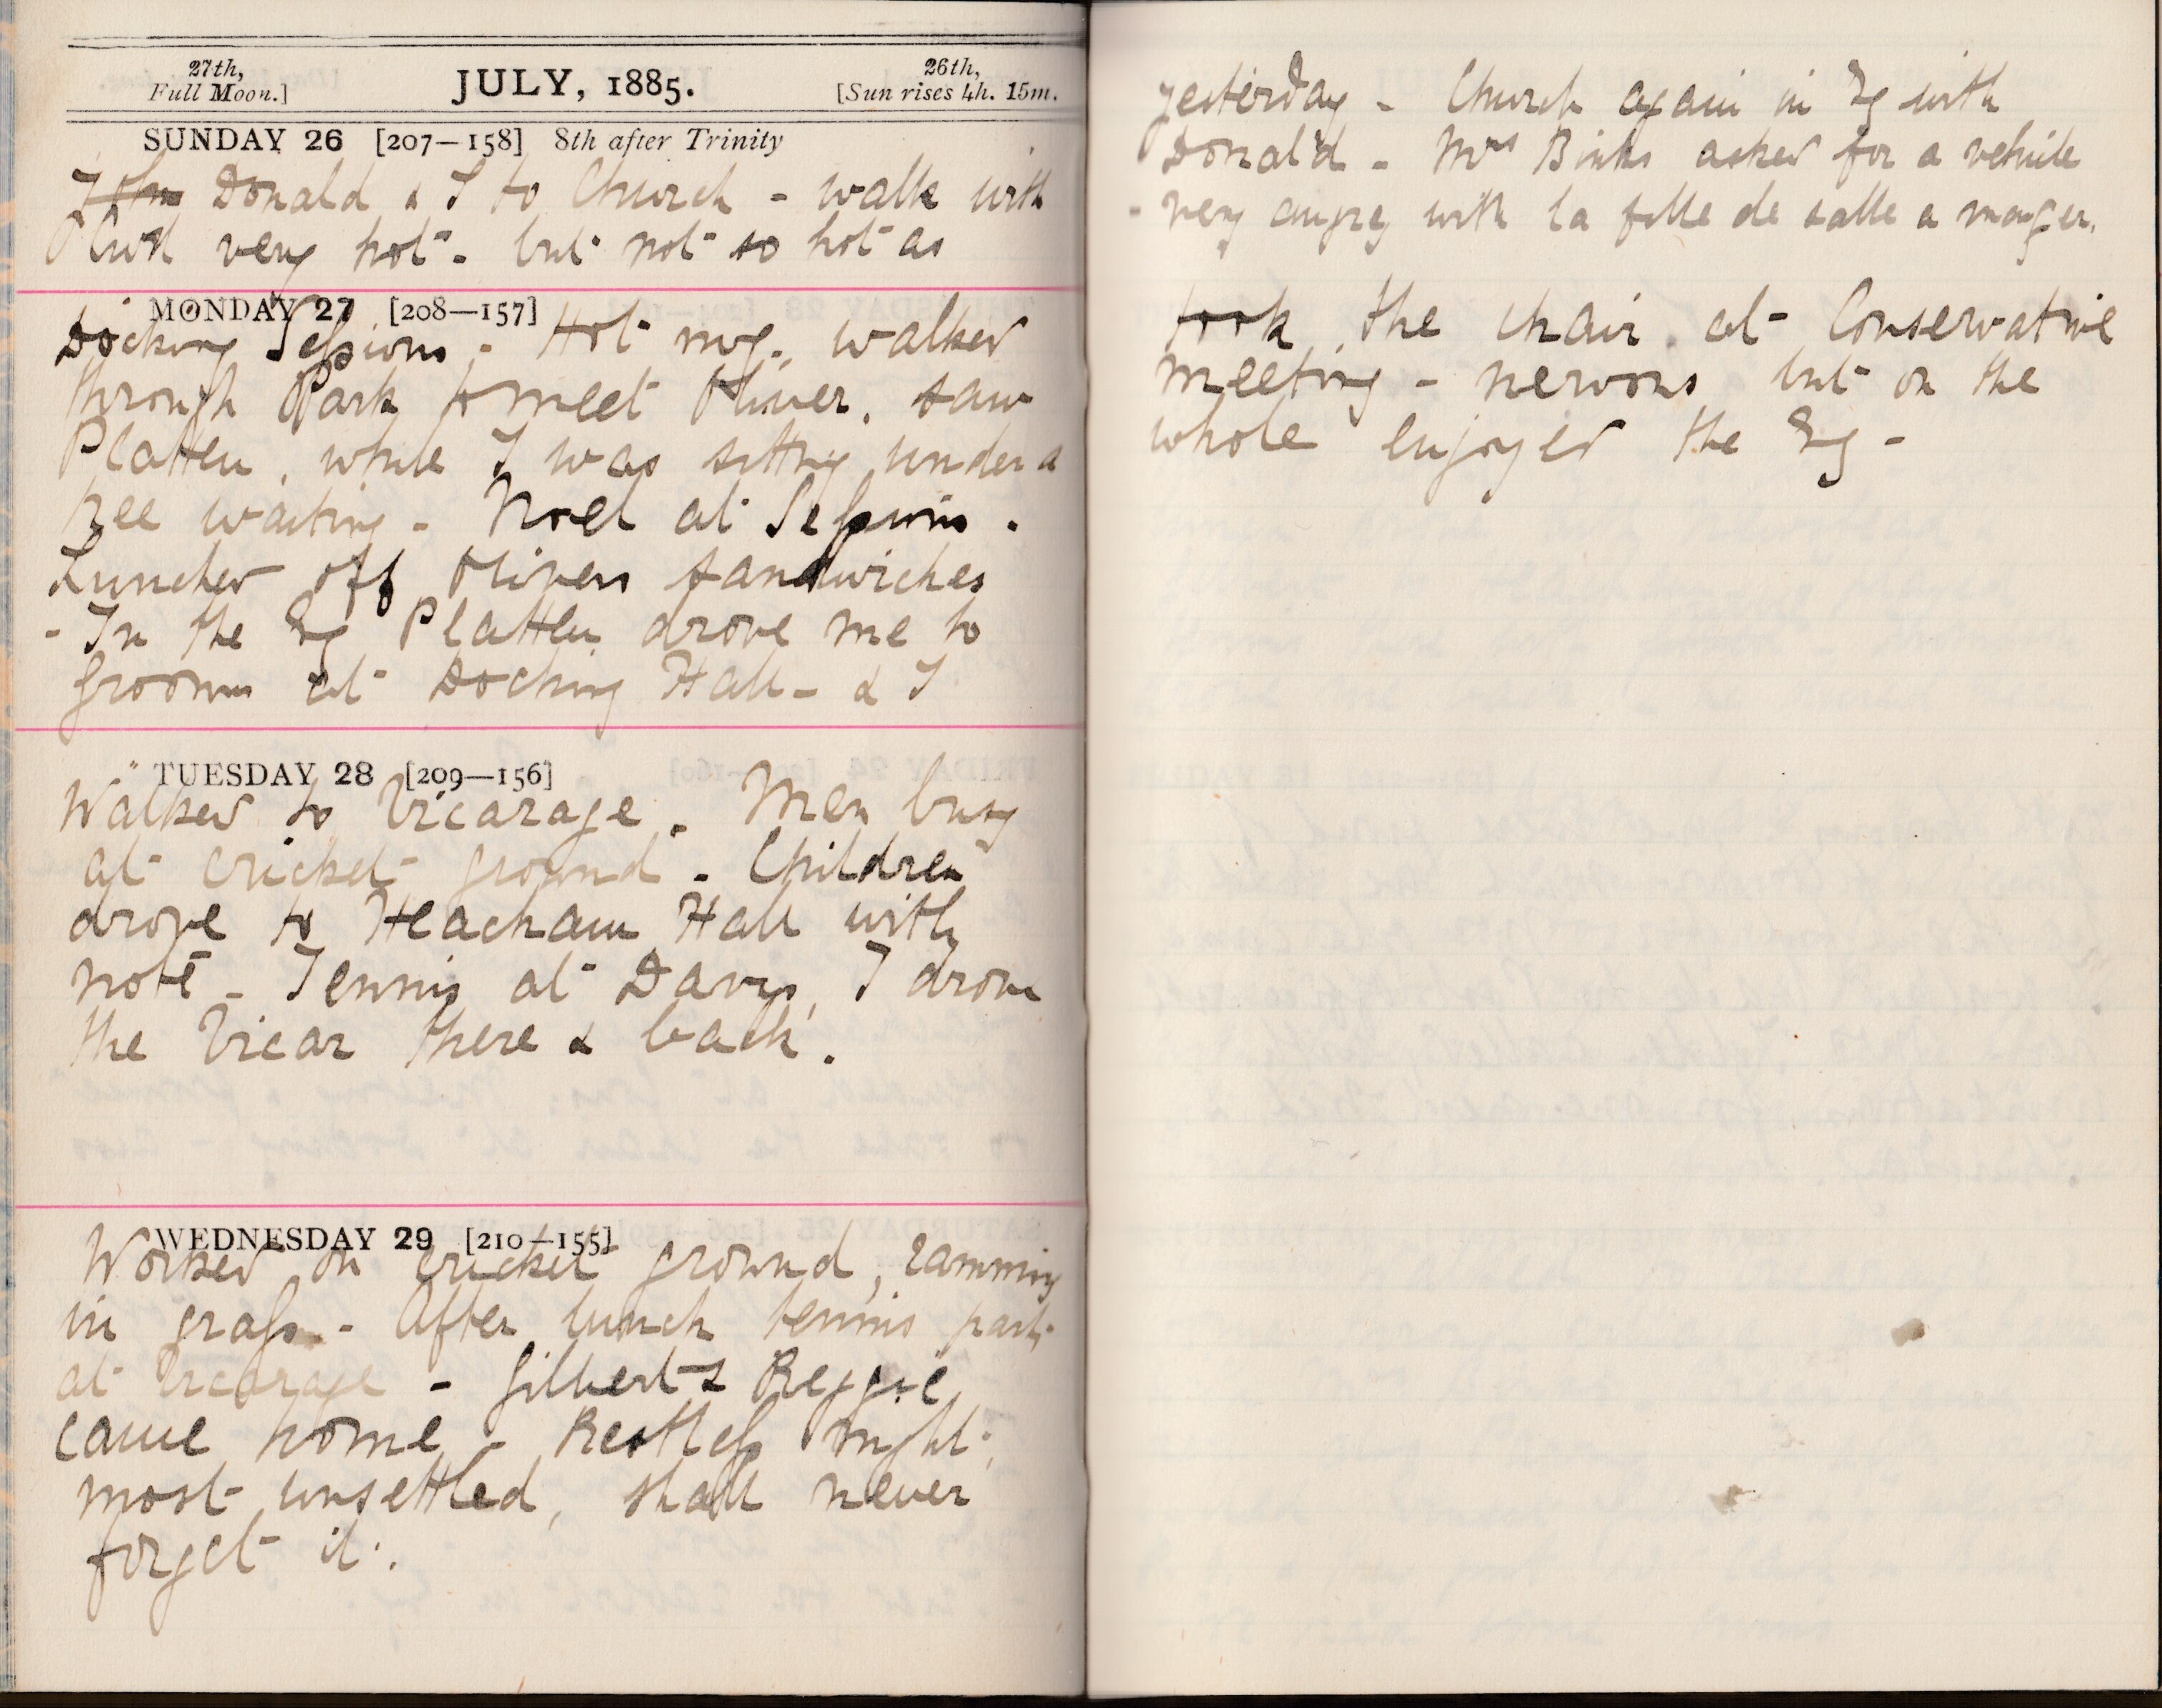 27th,
Full Moon.]
JULY, 1885.
26th,
[Sun rises 4h. 15m.
SUNDAY 26 [207—158] 8th after Trinity
Donald & I to Church - walk with
very hot - but not so hot as
MONDAY 27 [208—157]
Docking Sessions - Hot mg., walked
through Park to meet Oliver, saw
Platten, while I was sitting under a
tree waiting - Noel at Sessions.
Lunched off Olivers sandwiches
- In the Evg Platten drove me to
Grooms at Docking Hall - & I
TUESDAY 28 [209—156]
Walked to Vicarage. Men busy
at cricket ground - Children
drove to Heacham Hall with
note - Tennis at Davys, I drove
the Vicar there & back.
WEDNESDAY 29 [210—155]
Worked on cricket ground, ramming
in grass - After lunch tennis party
at Vicarage - Gilbert & Reggie
came home - Restless night,
most unsettled, shall never
forget it.
yesterday - Church again in Evg with
Donald - Mrs Binks asked for a vehicle
- very angry with la fille de salle a manger.
took the chair at Conservative
meeting - nervous but on the
whole enjoyed the Evg -